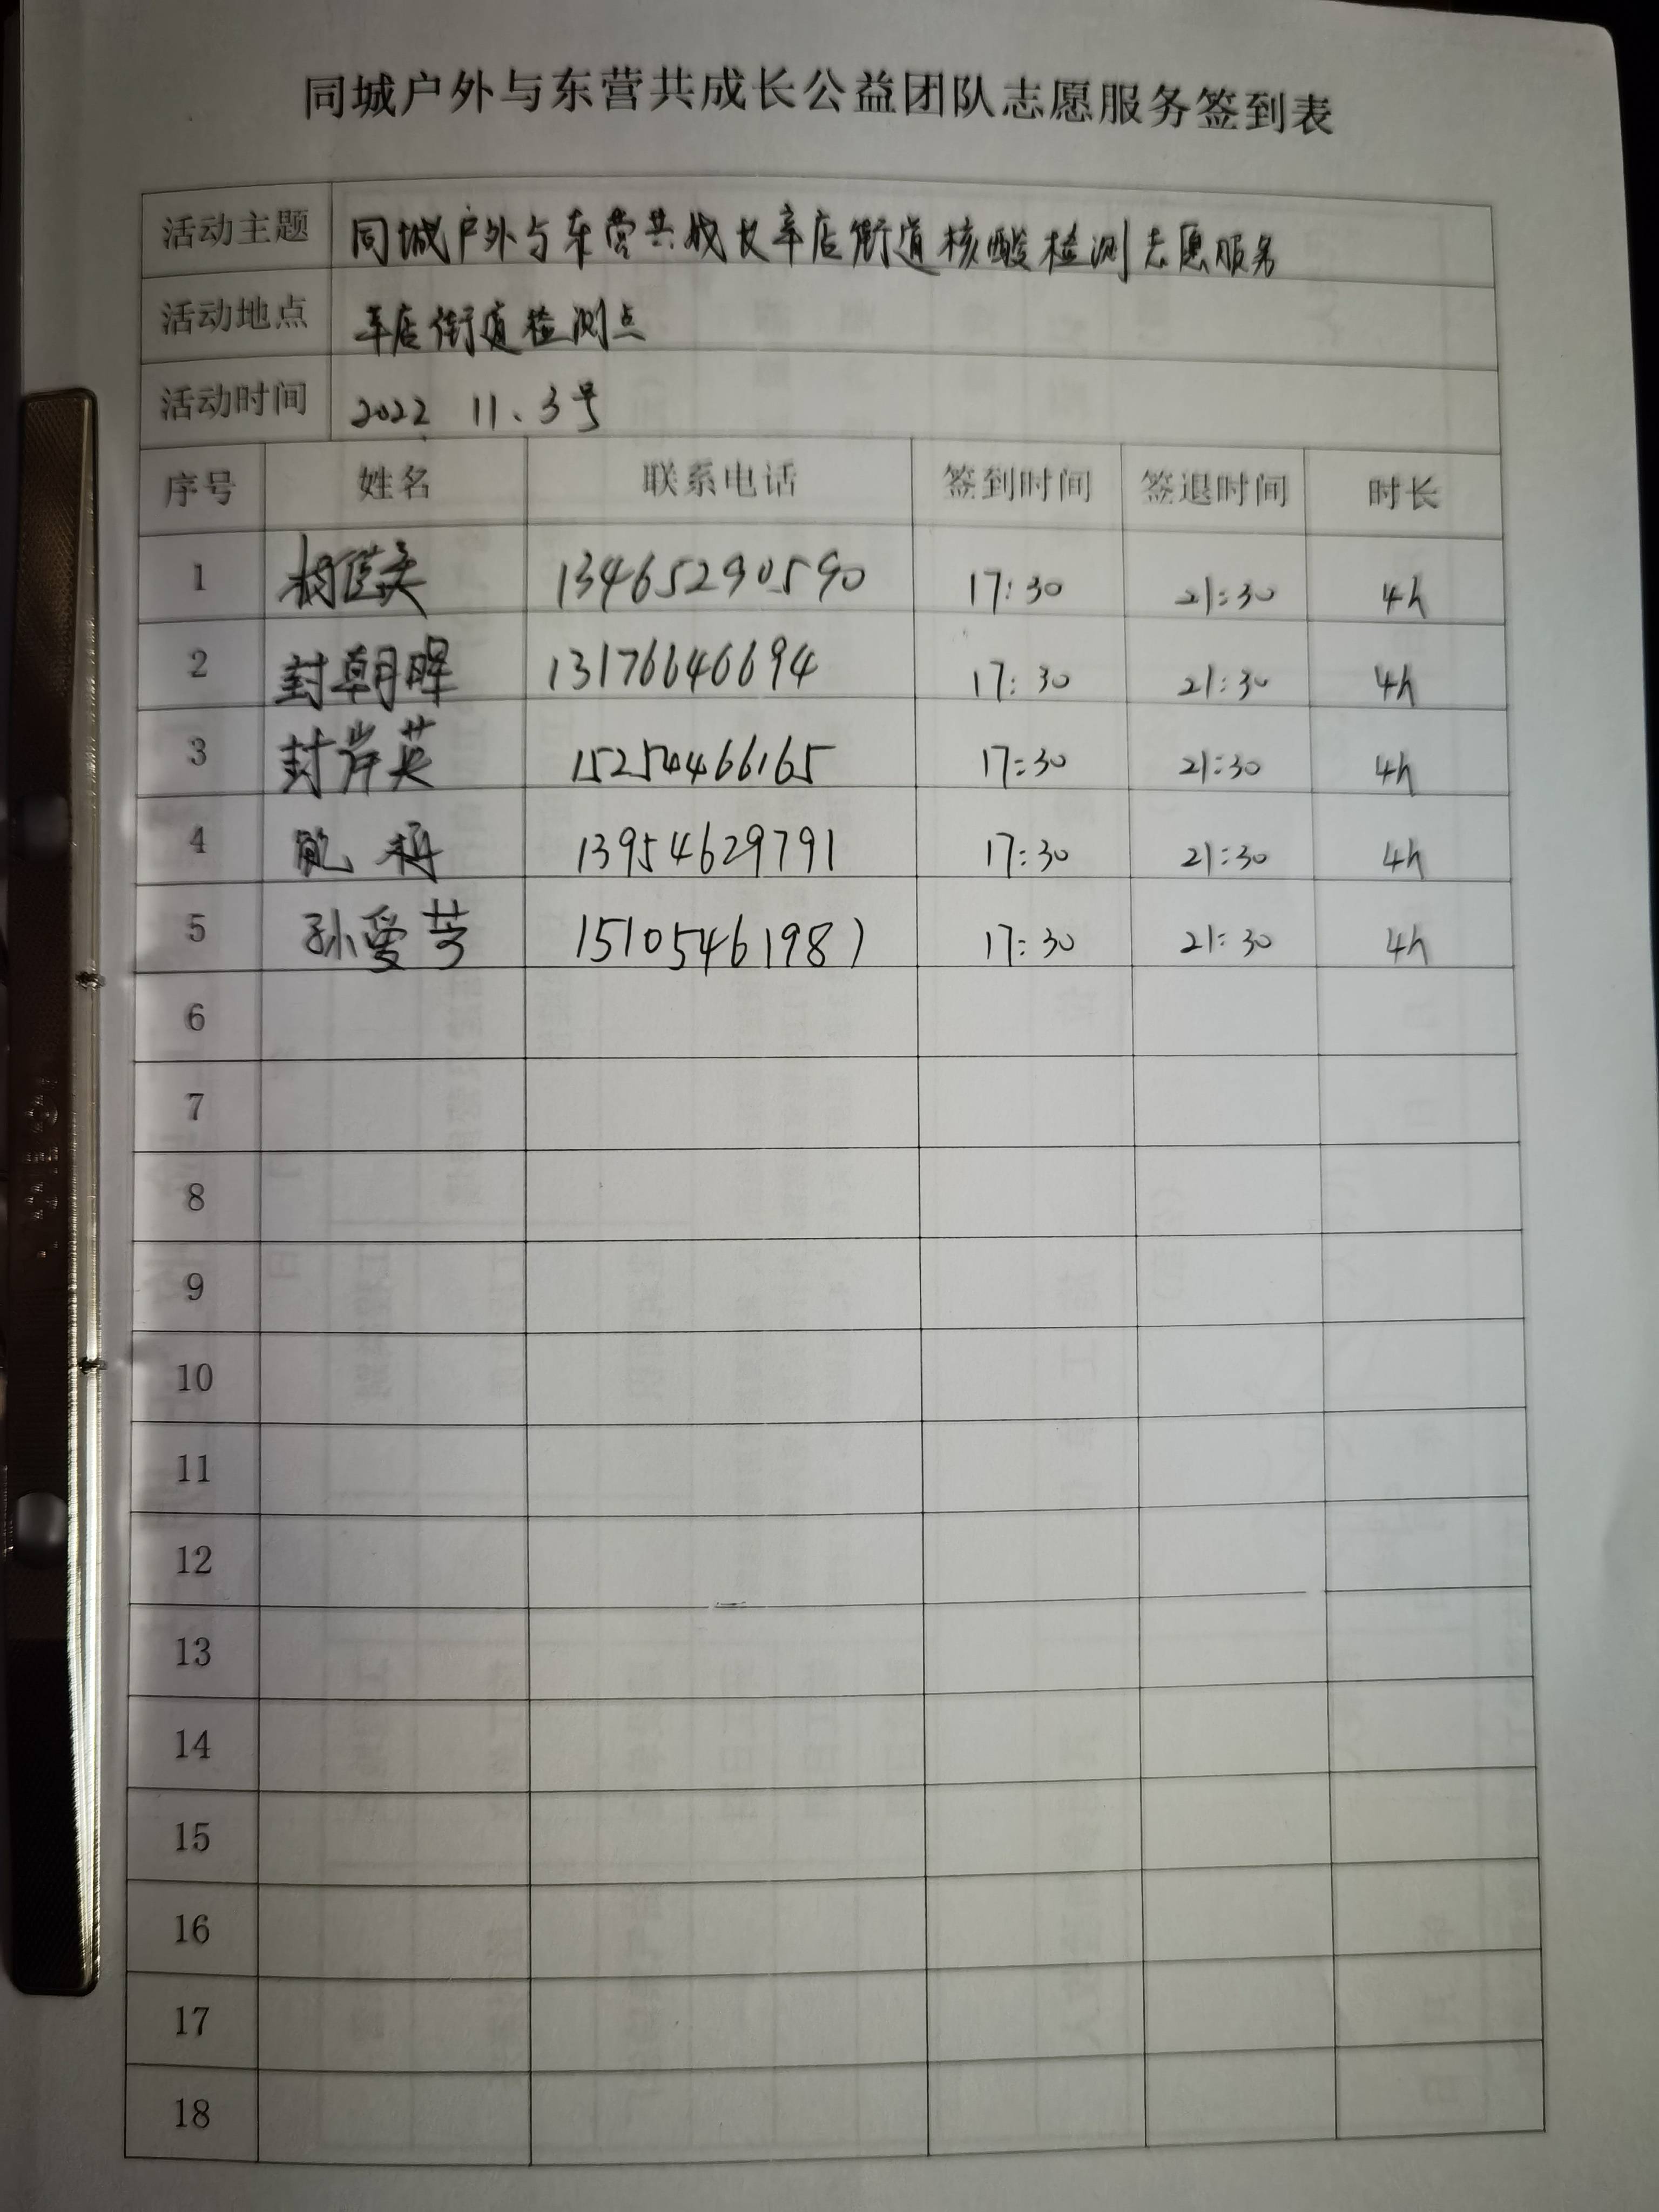 同城户外与东营共成长公益团队志愿服务签到表
活动主题 同城户外与东营共成长辛店街道核酸检测志愿服务
活动地点 辛店街道检测点
活动时间 2022 11、3号
序号 姓名 联系电话 签到时间 签退时间 时长
1 13465290590 17:30 21:30 4h
2 封朝晖 13176646694 17:30 21:30 4h
3 封岸英 15254466165 17:30 21:30 4h
4 13954629791 17:30 21:30 4h
5 孙爱芳 15105461987 17:30 21:30 4h
6
7
8
9
10
11
12
13
14
15
16
17
18